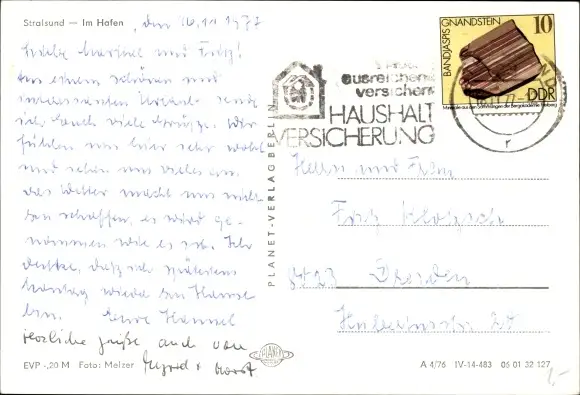 Stralsund — Im Hafen, den 16.11.1977
Liebe und Fritz!
Aus einem schönen und
interessanten Urlaub sende
ich euch viele Grüße. Wir
fühlen uns hier sehr wohl
und sehen uns vieles an.
Das Wetter macht uns nicht
zu schaffen, es wird ge-
nommen wie es ist. Ich
denke, daß ich spätestens
Montag wieder zu Hause
bin. Eure Hannel
Herzliche Grüße auch von
Horst
EVP -,20 M Foto: Melzer
PLANET-VERLAG BERLIN
PLANET
BANDJASPIS GNANDSTEIN
10
DDR
Minerale aus den Sammlungen der Bergakademie Freiberg
ausreichend
versichert
HAUSHALT
VERSICHERUNG
r
Herrn und Frau
Fritz
Dresden
20
A 4/76 IV-14-483 05 01 32 127